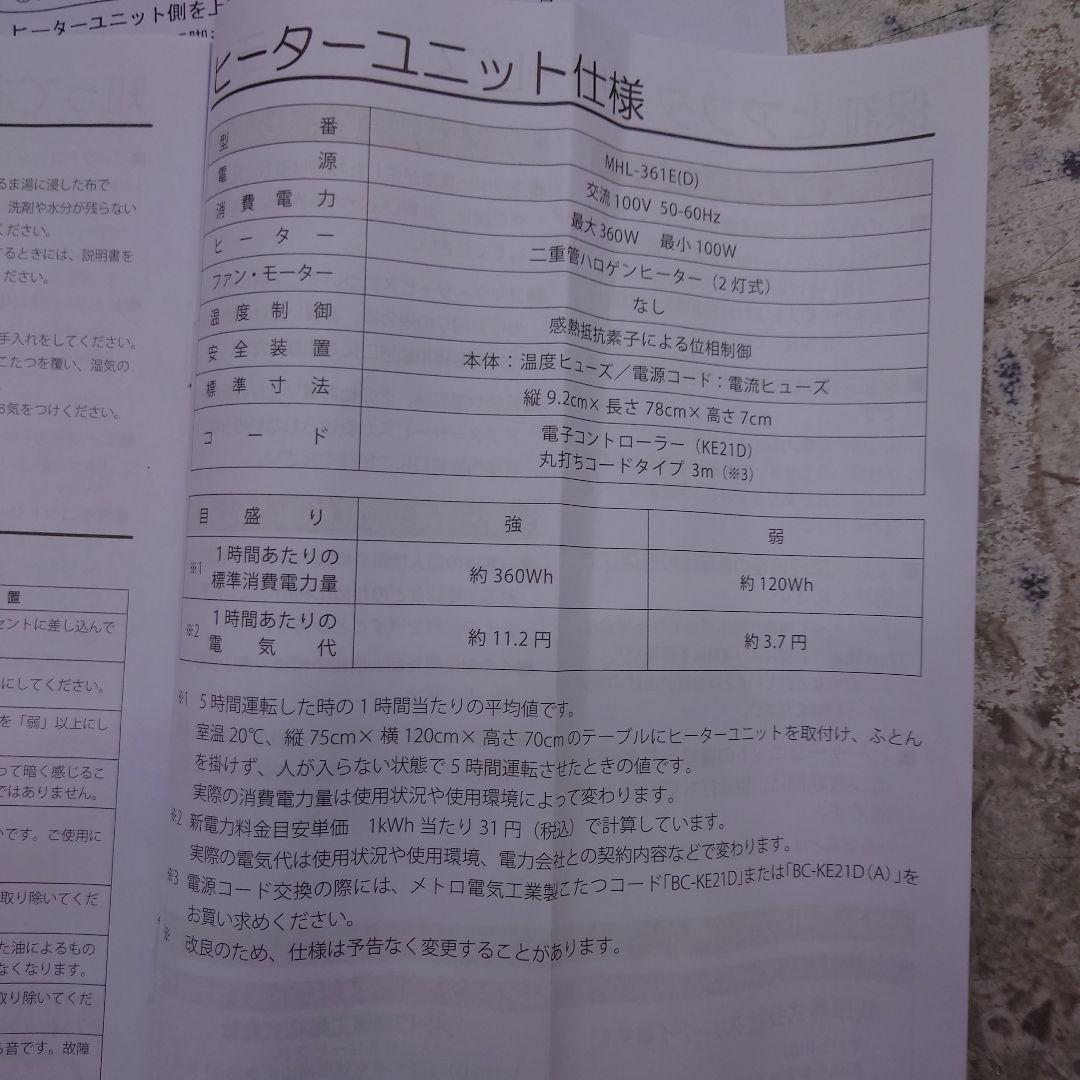 ヒーターユニット側を上
ヒーターユニット仕様
型番 MHL-361E(D)
電源 交流100V 50-60Hz
消費電力 最大360W 最小100W
ヒーター 二重管ハロゲンヒーター（2灯式）
ファン・モーター なし
温度制御 感熱抵抗素子による位相制御
安全装置 本体：温度ヒューズ／電源コード：電流ヒューズ
標準寸法 縦9.2cm×長さ78cm×高さ7cm
コード 電子コントローラー（KE21D）
丸打ちコードタイプ 3m（※3）
目盛り 強 弱
※1 1時間あたりの標準消費電力量 約360Wh 約120Wh
※2 1時間あたりの電気代 約11.2円 約3.7円
※1 5時間運転した時の1時間当たりの平均値です。
室温20℃、縦75cm×横120cm×高さ70cmのテーブルにヒーターユニットを取付け、ふとん
を掛けず、人が入らない状態で5時間運転させたときの値です。
実際の消費電力量は使用状況や使用環境によって変わります。
※2 新電力料金目安単価 1kWh当たり31円（税込）で計算しています。
実際の電気代は使用状況や使用環境、電力会社との契約内容などで変わります。
※3 電源コード交換の際には、メトロ電気工業製こたつコード「BC-KE21D」または「BC-KE21D（A）」を
お買い求めください。
※ 改良のため、仕様は予告なく変更することがあります。
知って
るま湯に浸した布で
洗剤や水分が残らない
ください。
するときには、説明書を
ください。
手入れをしてください。
こたつを覆い、湿気の
お気をつけください。
置
セントに差し込んで
にしてください。
を「弱」以上にし
って暗く感じるこ
ではありません。
いです。ご使用に
取り除いてくだ
た油によるもの
なくなります。
取り除いてくだ
る音です。故障